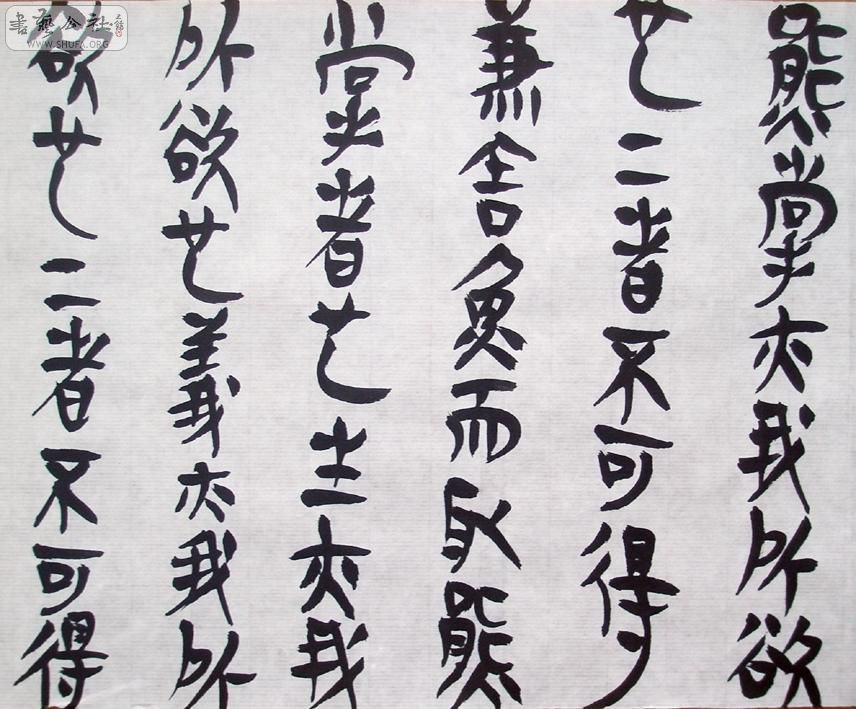 熊掌亦我所欲
也二者不可得
兼舍魚而取熊
掌者也生亦我
所欲也義亦我所
欲也二者不可得
書藝公社
WWW.SHUFA.ORG